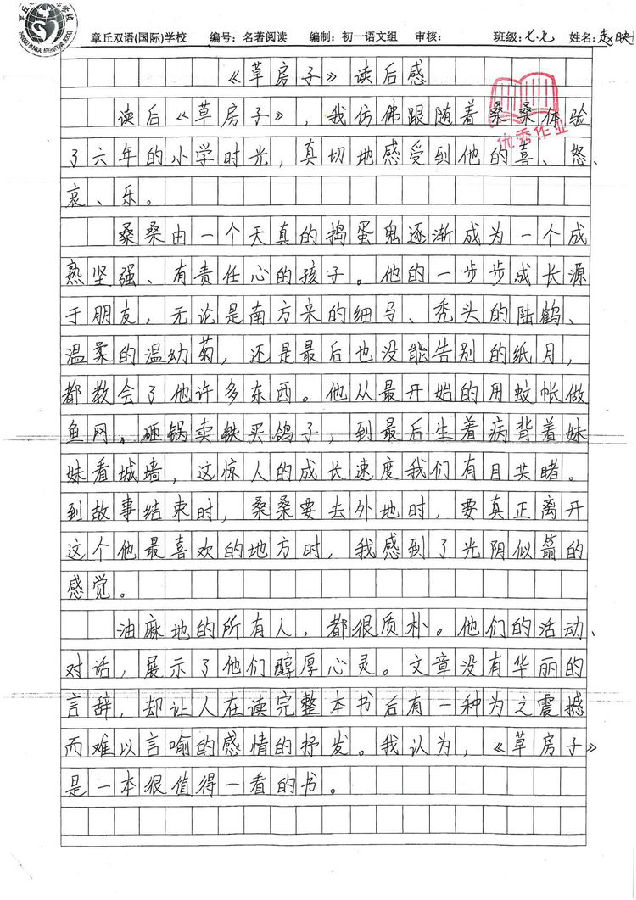 章丘双语(国际)学校 编号：名著阅读 编制：初一语文组 审核： 班级：七.七 姓名：
《草房子》读后感
优秀作业
读后《草房子》，我仿佛跟随着桑桑体验
了六年的小学时光，真切地感受到他的喜、怒、
哀、乐。
桑桑由一个天真的捣蛋鬼逐渐成为一个成
熟坚强、有责任心的孩子。他的一步步成长源
于朋友，无论是南方来的细马、秃头的陆鹤、
温柔的温幼菊，还是最后也没能告别的纸月，
都教会了他许多东西。他从最开始的用蚊帐做
鱼网，砸锅卖铁买鸽子，到最后生着病背着妹
妹看城墙，这惊人的成长速度我们有目共睹。
到故事结束时，桑桑要去外地时，要真正离开
这个他最喜欢的地方时，我感到了光阴似箭的
感觉。
油麻地的所有人，都很质朴。他们的活动、
对话，展示了他们醇厚心灵。文章没有华丽的
言辞，却让人在读完整本书后有一种为之震撼
而难以言喻的感情的抒发。我认为，《草房子》
是一本很值得一看的书。